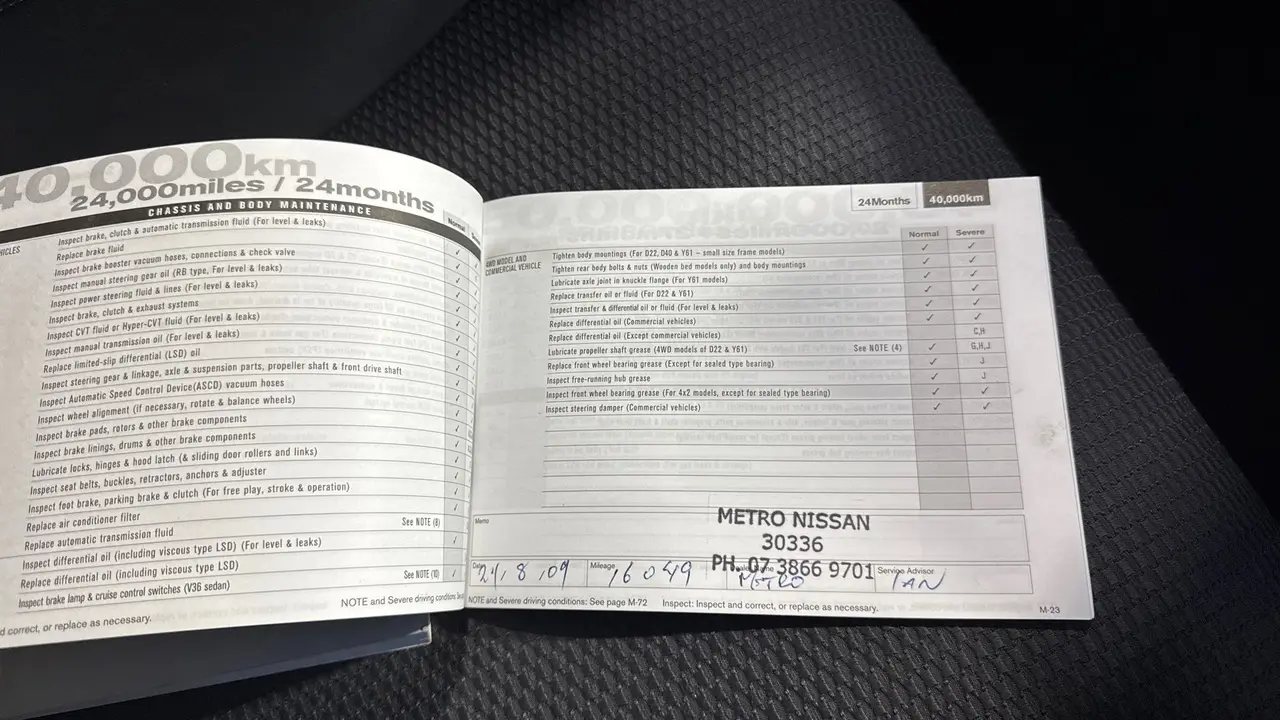 40,000km
24,000miles / 24months
CHASSIS AND BODY MAINTENANCE
Normal
Inspect brake, clutch & automatic transmission fluid (For level & leaks)
Replace brake fluid
Inspect brake booster vacuum hoses, connections & check valve
Inspect manual steering gear oil (RB type, For level & leaks)
Inspect power steering fluid & lines (For level & leaks)
Inspect brake, clutch & exhaust systems
Inspect CVT fluid or Hyper-CVT fluid (For level & leaks)
Inspect manual transmission oil (For level & leaks)
Replace limited-slip differential (LSD) oil
Inspect steering gear & linkage, axle & suspension parts, propeller shaft & front drive shaft
Inspect Automatic Speed Control Device(ASCD) vacuum hoses
Inspect wheel alignment (if necessary, rotate & balance wheels)
Inspect brake pads, rotors & other brake components
Inspect brake linings, drums & other brake components
Lubricate locks, hinges & hood latch (& sliding door rollers and links)
Inspect seat belts, buckles, retractors, anchors & adjuster
Inspect foot brake, parking brake & clutch (For free play, stroke & operation)
Replace air conditioner filter See NOTE (8)
Replace automatic transmission fluid
Inspect differential oil (including viscous type LSD) (For level & leaks)
Replace differential oil (including viscous type LSD) See NOTE (10)
Inspect brake lamp & cruise control switches (V36 sedan)
NOTE and Severe driving conditions:
correct, or replace as necessary.
24Months 40,000km
Normal Severe
4WD MODEL AND
COMMERCIAL VEHICLE
Tighten body mountings (For D22, D40 & Y61 – small size frame models) ✓ ✓
Tighten rear body bolts & nuts (Wooden bed models only) and body mountings ✓ ✓
Lubricate axle joint in knuckle flange (For Y61 models) ✓ ✓
Replace transfer oil or fluid (For D22 & Y61) ✓ ✓
Inspect transfer & differential oil or fluid (For level & leaks) ✓ ✓
Replace differential oil (Commercial vehicles) ✓ ✓
Replace differential oil (Except commercial vehicles) C,H
Lubricate propeller shaft grease (4WD models of D22 & Y61) See NOTE (4) ✓ G,H,J
Replace front wheel bearing grease (Except for sealed type bearing) ✓ J
Inspect free-running hub grease ✓ J
Inspect front wheel bearing grease (For 4x2 models, except for sealed type bearing) ✓ ✓
Inspect steering damper (Commercial vehicles) ✓ ✓
Memo
METRO NISSAN
30336
PH. 07 3866 9701
Mileage 16049
METRO
Service Advisor IAN
NOTE and Severe driving conditions: See page M-72 Inspect: Inspect and correct, or replace as necessary.
M-23